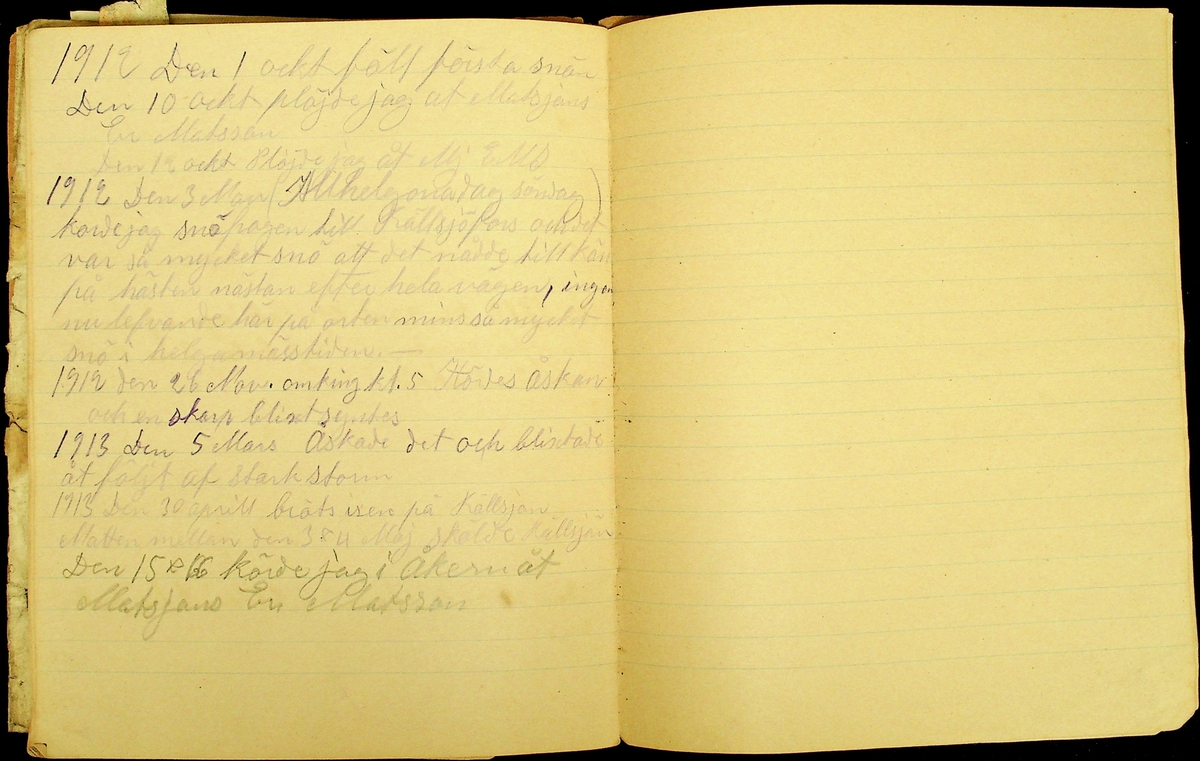 1912 Den 1 ockt föll första snön
Den 10 ockt plöjde jag åt Matsjans
Er Matsson
Den 12 ockt Plöjde jag åt Mj EMS
1912 Den 3 Nov (Allhelgonadag söndag)
körde jag snöplogen till Källsjöfors och det
var så mycket snö att det nådde till knän
på hästen nästan efter hela vägen, ingen
nu lefvande här på orten mins så mycket
snö i helgamässtiden. —
1912 den 26 Nov. omkring kl. 5 Hördes Åskan
och en skarp blixt syntes
1913 Den 5 Mars Åskade det och blixtade
åt följt af stark storm
1913 Den 30 aprill bröts isen på Källsjön
Natten mellan den 3 o 4 Maj skölde Källsjön
Den 15 o 16 körde jag i åkern åt
Matsjans Er Matsson